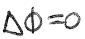 Δϕ=0